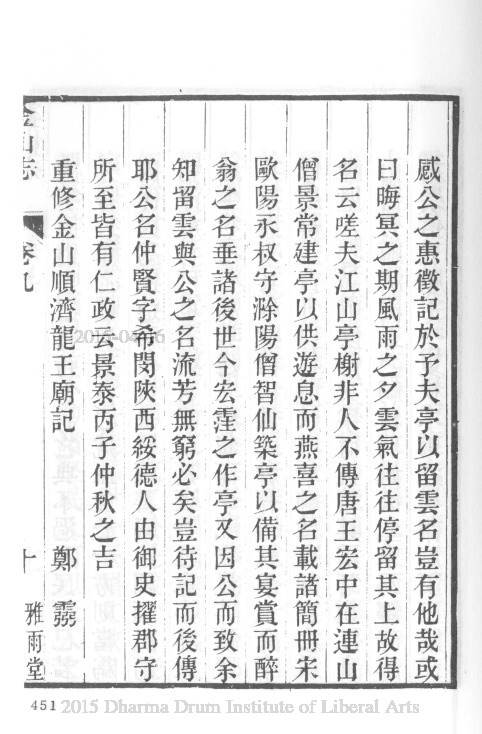 感公之惠徵記於予夫亭以留雲名豈有他哉或
曰晦冥之期風雨之夕雲氣往往停留其上故得
名云嗟夫江山亭榭非人不傳唐王宏中在連山
僧景常建亭以供遊息而燕喜之名載諸簡冊宋
歐陽永叔守滁陽僧智仙築亭以備其宴賞而醉
翁之名垂諸後世今宏霪之作亭又因公而致余
知留雲與公之名流芳無窮必矣豈待記而後傳
耶公名仲賢字希閔陝西綏德人由御史擢郡守
所至皆有仁政云景泰丙子仲秋之吉
重修金山順濟龍王廟記 鄭
金山志 卷九 十 雅雨堂
451 2015 Dharma Drum Institute of Liberal Arts